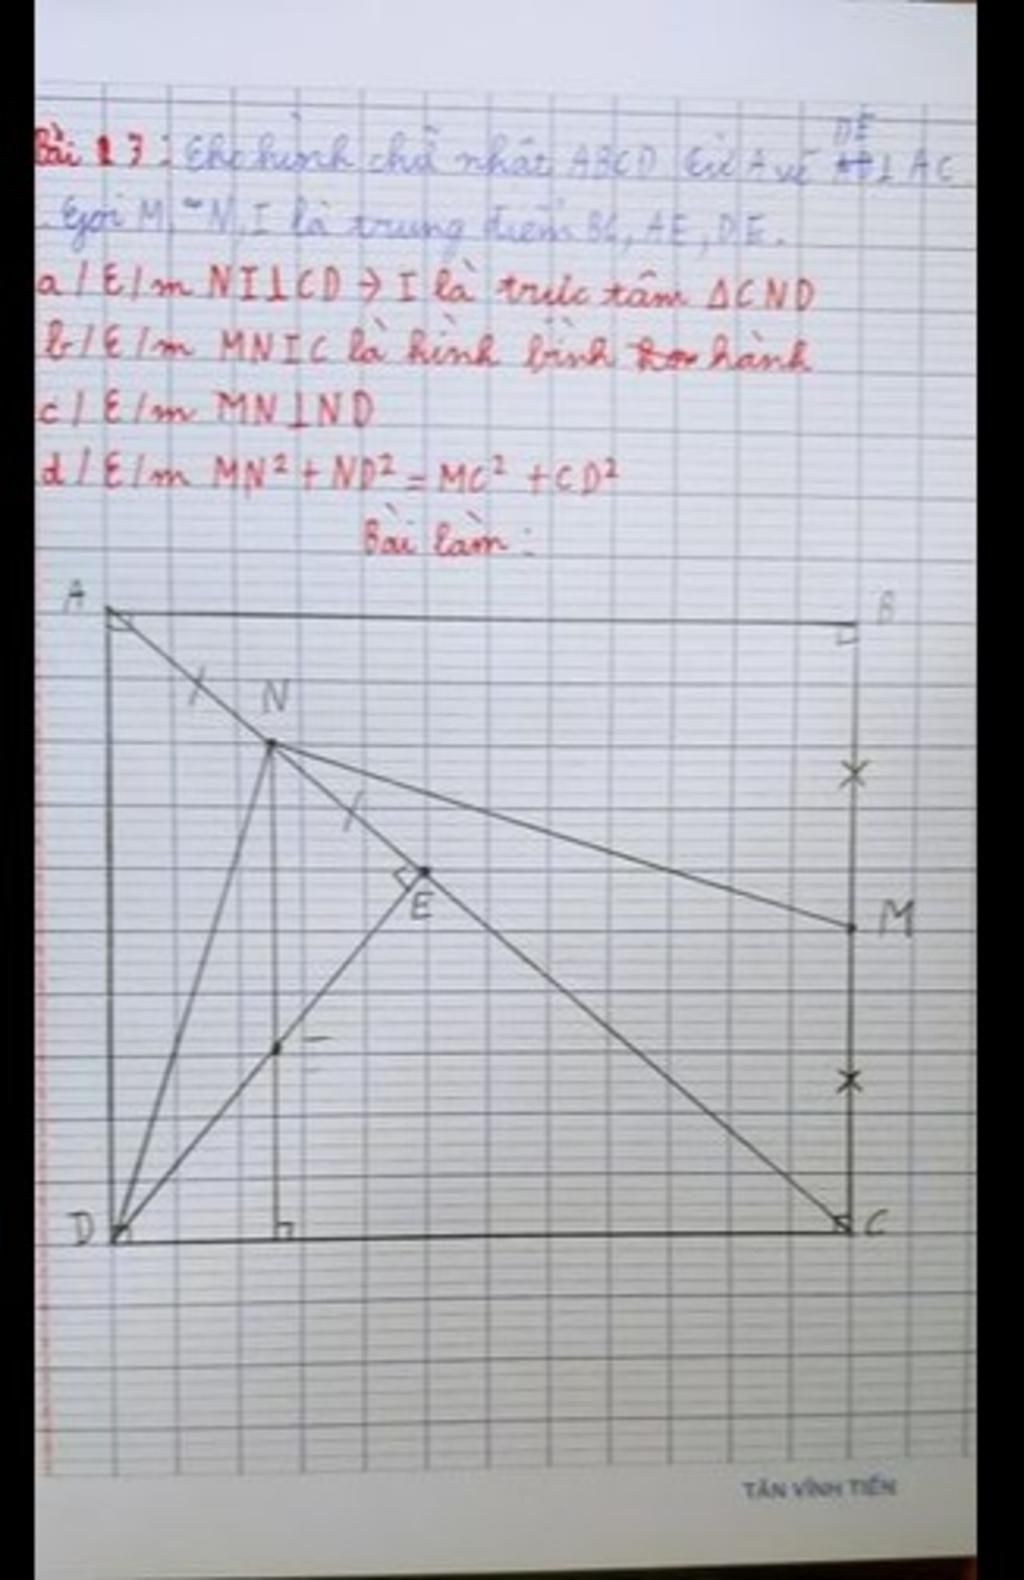 Bài 17: Cho hình chữ nhật ABCD từ A vẽ DE ⊥ AC
. Gọi M, N, I là trung điểm BC, AE, DE.
a/ C/m NI⊥CD → I là trực tâm ΔCND
b/ C/m MNIC là hình bình hành
c/ C/m MN⊥ND
d/ C/m MN² + ND² = MC² + CD²
Bài làm:
A
B
N
E
M
I
D
C
TÂN VĨNH TIẾN